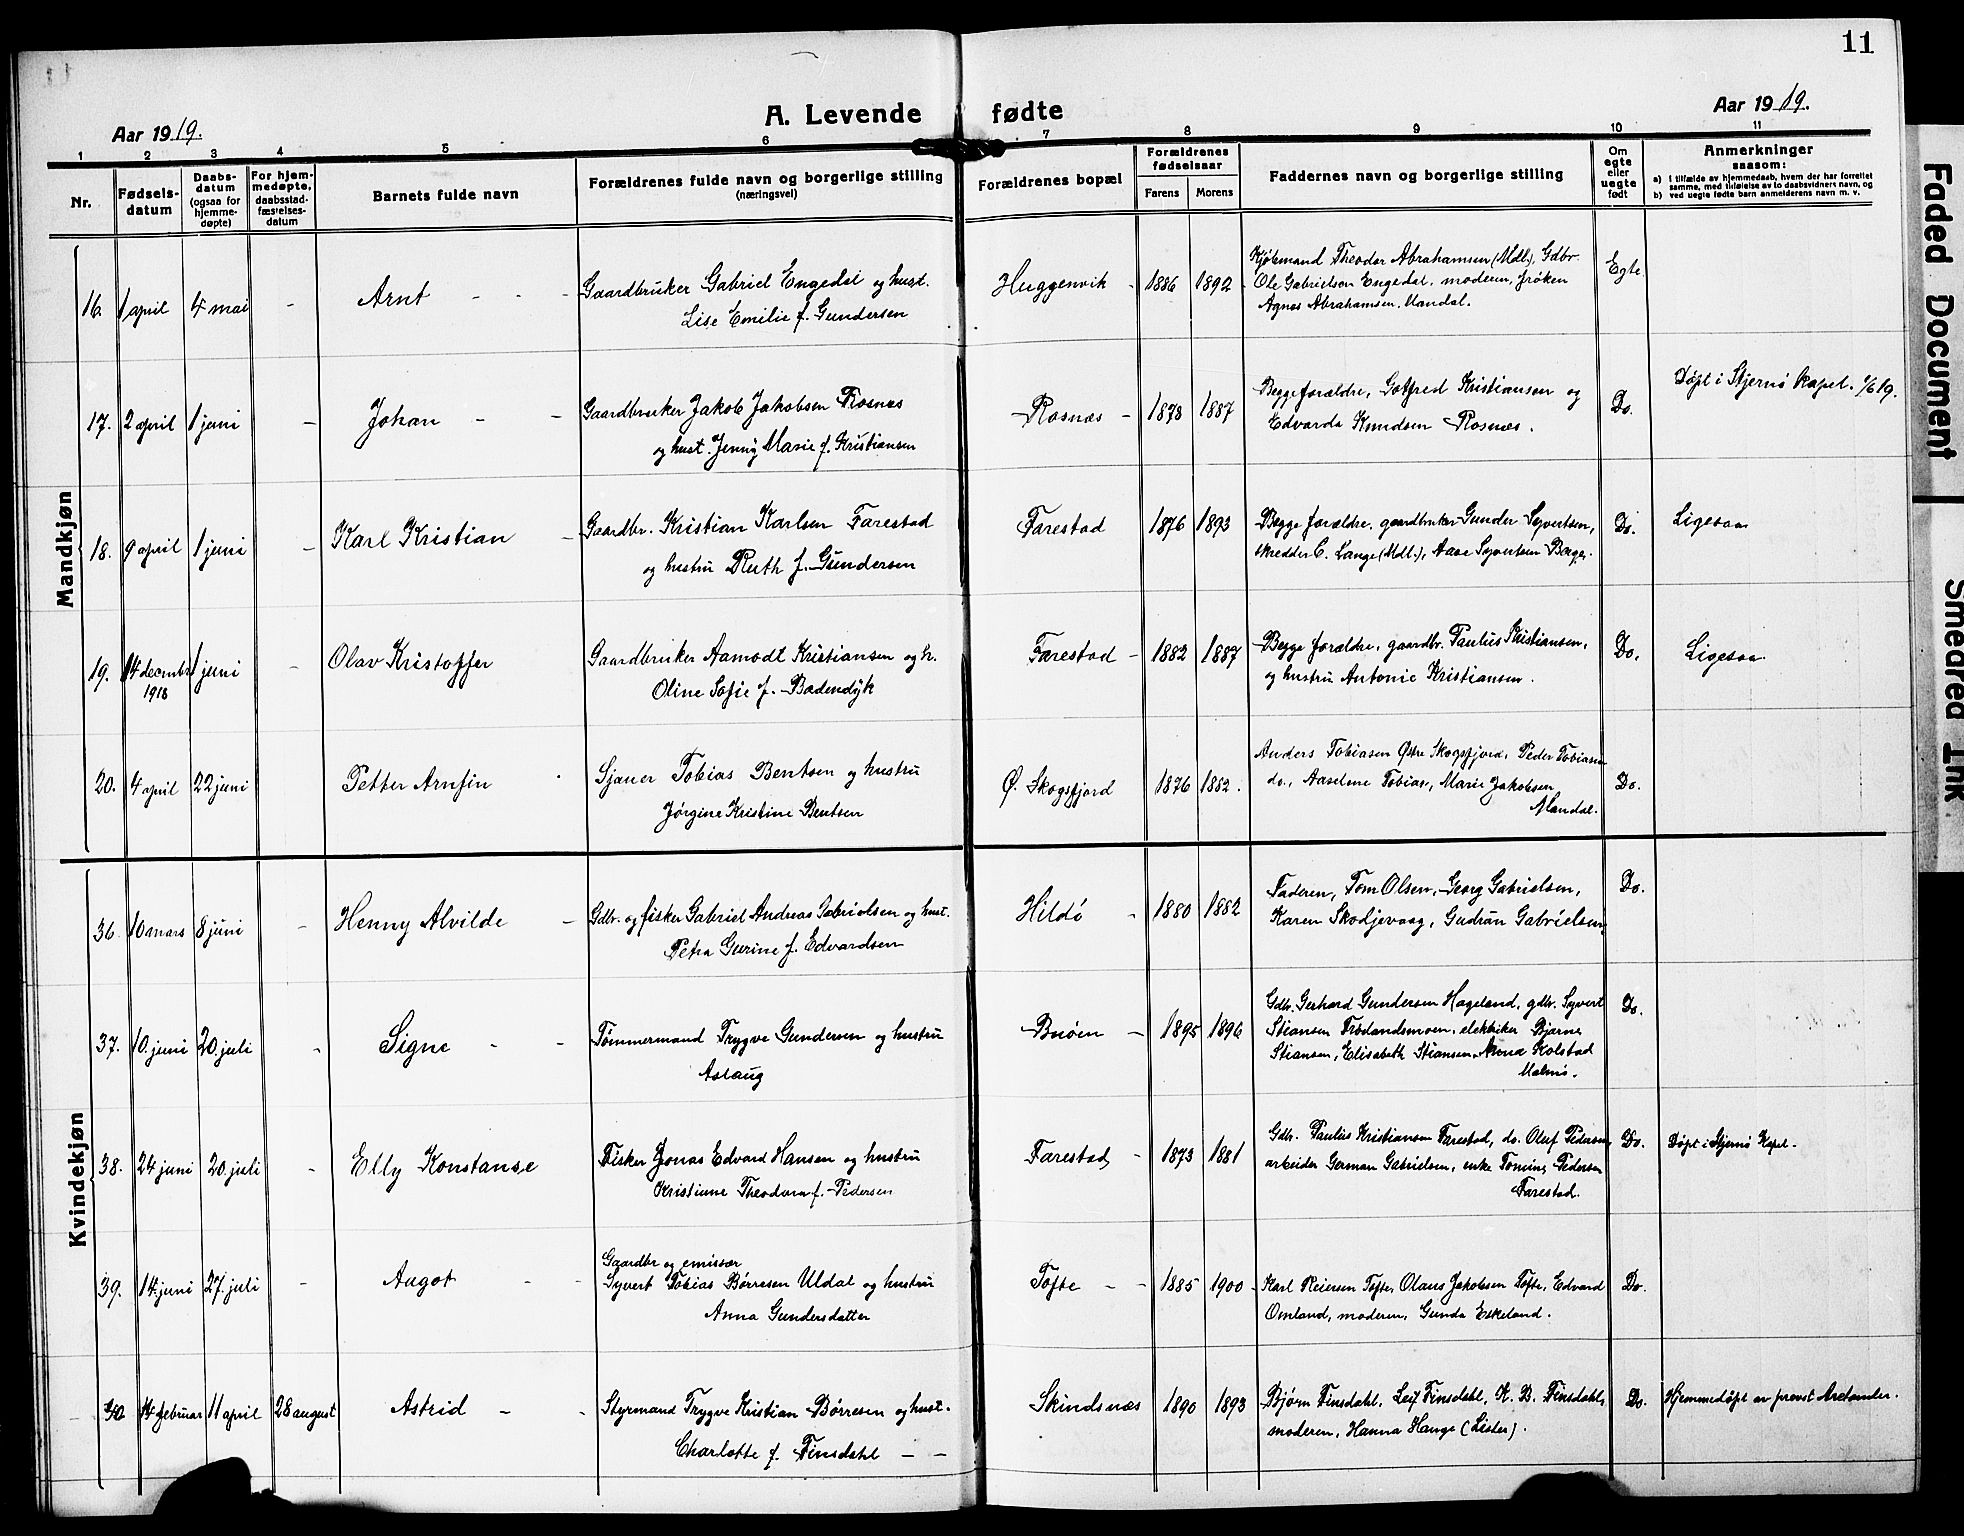 11
A. Levende fødte
Aar 1919.
Aar 1919.
1 2 3 4 5 6 7 8 9 10 11
Nr.
Fødsels-datum
Daabs-datum (ogsaa for hjemme-døpte)
For hjem-medøpte, daabsstad-fæstelses-datum
Barnets fulde navn
Forældrenes fulde navn og borgerlige stilling (næringsvei)
Forældrenes bopæl
Forældrenes fødselsaar
Farens Morens
Faddernes navn og borgerlige stilling
Om egte eller uegte født
Anmerkninger
saasom:
a) I tilfælde av hjemmedaab, hvem der har forrettet samme, med tilføielse av to daabsvidners navn, og
b) ved uegte fødte barn anmelderens navn m. v.
Mandkjøn
16. 1 april 4 mai - Arnt - -
Gaardbruker Gabriel Engedal og hust.
Lise Emilie f. Gundersen
Huggenvik - 1886 1892
Kjøbmand Theodor Abrahamsen (Mdl.), Gdbr.
Ole Gabrielsen Engedal, moderen, frøken
Agnes Abrahamsen, Mandal.
Egte
17. 2 april 1 juni - Johan - -
Gaardbruker Jakob Jakobsen Rosnes
og hust. Jenny Marie f. Kristiansen
Rosnes - 1878 1887
Begge forældre, Gotfred Kristiansen og
Edvarda Knudsen Rosnes.
Do.
Døpt i Stjernø kapel. 1/6 19.
18. 9 april 1 juni - Karl Kristian -
Gaardbr. Kristian Karlsen Farestad
og hustru Ruth f. Gundersen
Farestad 1876 1893
Begge forældre, gaardbruker Gunder Syvertsen,
skredder C. Lange (Mdl.), Aase Syvertsen Berge.
Do.
Ligesaa
19. 14 decmbr 1918 1 juni - Olav Kristoffer
Gaardbruker Aamodt Kristiansen og h.
Oline Sofie f. Badendyk
Farestad - 1882 1887
Begge forældre, gaardbr. Paulus Kristiansen,
og hustru Antonie Kristiansen.
Do.
Ligesaa
20. 4 april 22 juni Petter Arnfin
Sjauer Tobias Bentsen og hustru
Jørgine Kristine Bentsen
Ø. Skogsfjord 1876 1882.
Anders Tobiasen Østre Skogsfjord, Peder Tobiasen
do., Aaselene Tobias., Marie Jakobsen
Mandal.
Do.
Kvindekjøn
36. 10 mars 8 juni - Henny Alvilde -
Gdbr. og fisker Gabriel Andreas Gabrielsen og hust.
Petra Gurine f. Edvardsen
Hildø - 1880 1882
Faderen, Tom Olsen, Georg Gabrielsen,
Karen Skodjevaag, Gudrun Gabrielsen.
Do.
37. 10. juni 20. juli - Signe - -
Tømmermand Trygve Gundersen og hustru
Aslaug
Buøen - 1895 1896
Gdbr. Gerhard Gundersen Hageland, gdbr. Syvert
Stiansen Frodandsmoen, elektriker Bjarne
Stiansen, Elisabeth Stiansen, Anna Kolstad
Malmø.
Do.
38. 24 juni 20. juli - Elly Konstanse
Fisker Jonas Edvard Hansen og hustru
Kristiane Theodora f. Pedersen
Farestad - 1873 1881
Gdbr. Paulus Kristiansen Farestad, do. Oluf Pedersen,
arbeider German Gabrielsen, enke Tomine Pedersen
Farestad.
Do.
Døpt i Stjernø Kapel.
39. 14. juni 27. juli - Augot - -
Gaardbr og emissær
Syvert Tobias Børresen Uldal og hustru
Anna Gundersdatter
Tofte - - 1885 1900
Karl Reiersen Tofte, Olaus Jakobsen Tofte, Edvard
Omland, moderen, Gunda Eskeland.
Do.
40 14 februar 11 april 28 august Astrid - -
Styrmand Trygve Kristian Børresen og hust.
Charlotte f. Finsdahl - -
Skindsnæs 1890 1893
Bjørn Finsdahl, Leif Finsdahl, K. B. Finsdahl,
moderen, Hanna Hange (Lister).
Do.
Hjemmedøpt av provst Aretander.
Faded Document
Smeared Ink